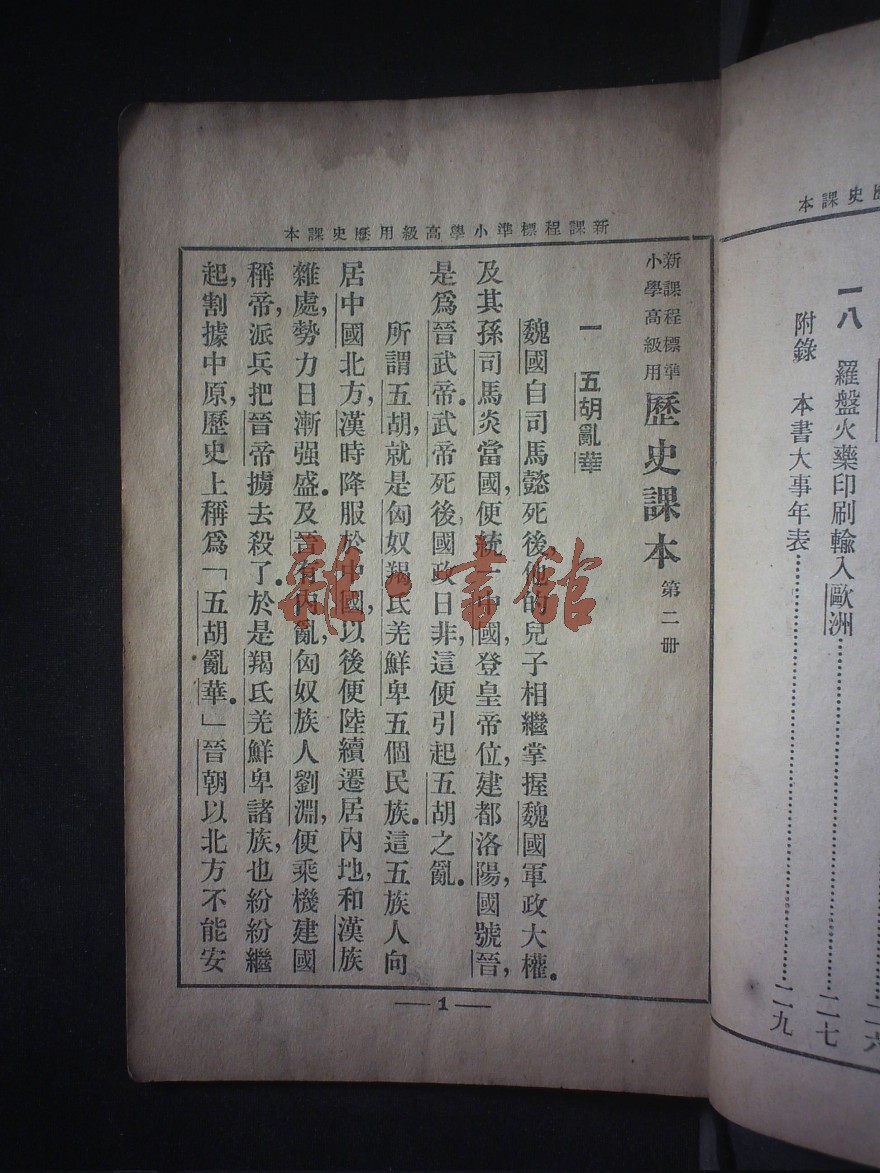 本課史歷用級高學小準標程課新
新課程標準
小學高級用
歷史課本 第二冊
一 五胡亂華
魏國自司馬懿死後，他的兒子相繼掌握魏國軍政大權。
及其孫司馬炎當國，便統一中國，登皇帝位，建都洛陽，國號晉，
是爲晉武帝。武帝死後，國政日非，這便引起五胡之亂。
所謂五胡，就是匈奴羯氐羌鮮卑五個民族。這五族人向
居中國北方，漢時降服於中國，以後便陸續遷居內地，和漢族
雜處，勢力日漸强盛。及晉有內亂，匈奴族人劉淵，便乘機建國
稱帝，派兵把晉帝擄去殺了。於是羯氐羌鮮卑諸族，也紛紛繼
起，割據中原，歷史上稱爲「五胡亂華。」晉朝以北方不能安
— 1 —
本課史歷
一八 羅盤火藥印刷輸入歐洲……二七
附錄 本書大事年表……二九
雜·書館